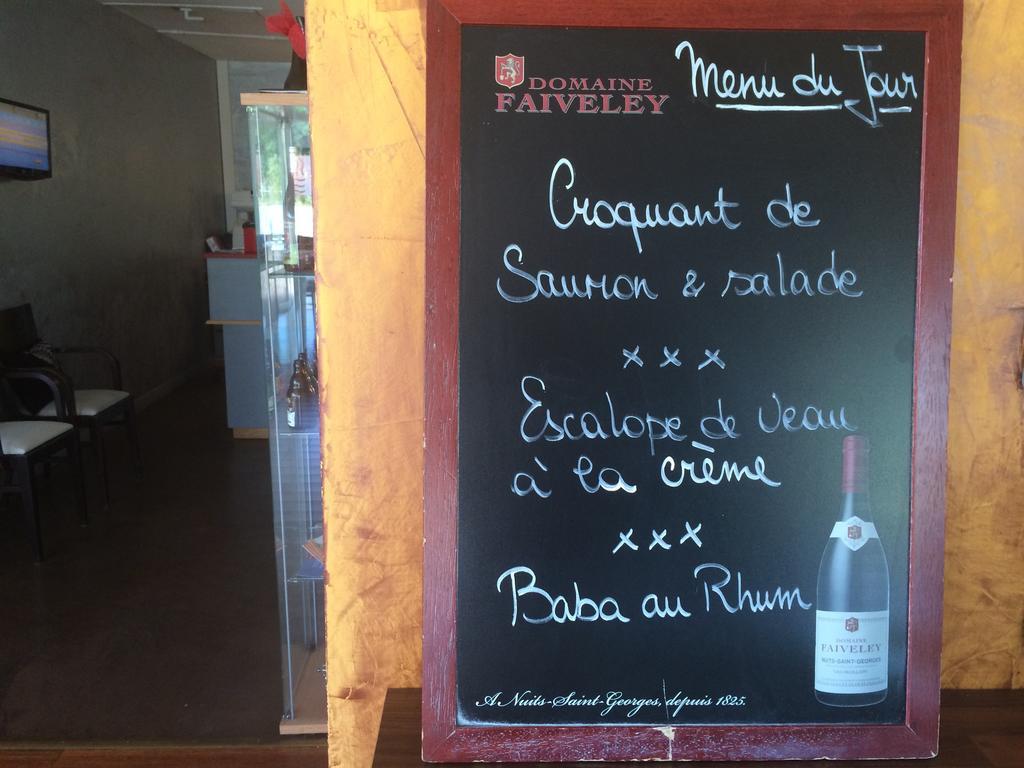 DOMAINE
FAIVELEY
Menu du Jour
Croquant de
Saumon & salade
x x x
Escalope de veau
à la crème
x x x
Baba au Rhum
DOMAINE
FAIVELEY
NUITS-SAINT-GEORGES
A Nuits-Saint-Georges, depuis 1825.